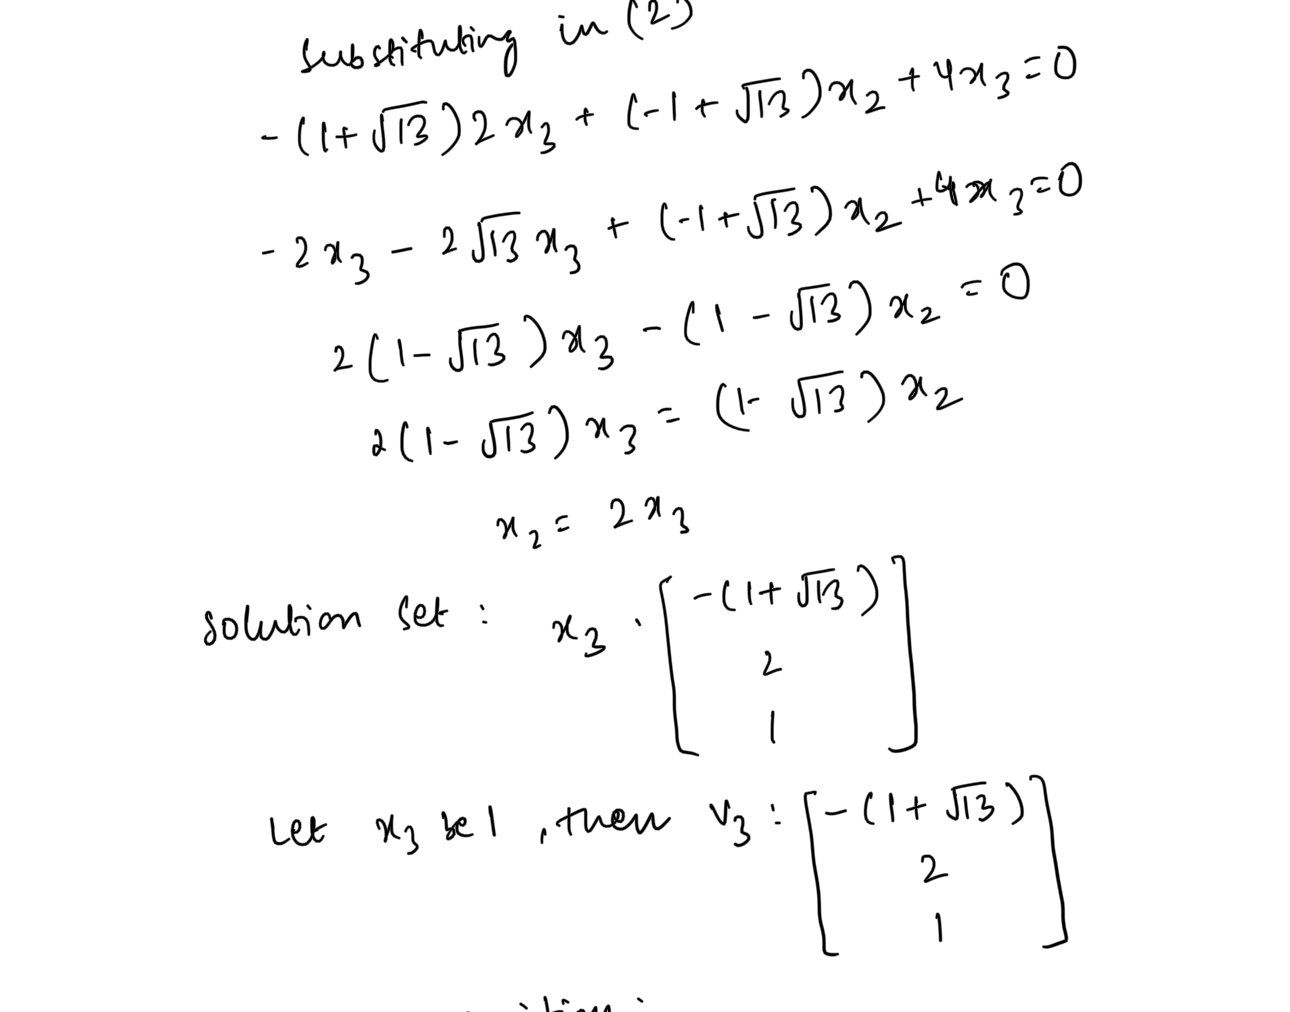 substituting in (2)
-(1+√13)2x₃ + (-1+√13)x₂ + 4x₃ = 0
-2x₃ - 2√13 x₃ + (-1+√13)x₂ + 4x₃ = 0
2(1-√13)x₃ - (1-√13)x₂ = 0
2(1-√13)x₃ = (1-√13)x₂
x₂ = 2x₃
solution set : x₃ . [-(1+√13)
2
1]
Let x₃ be 1, then v₃ : [-(1+√13)
2
1]